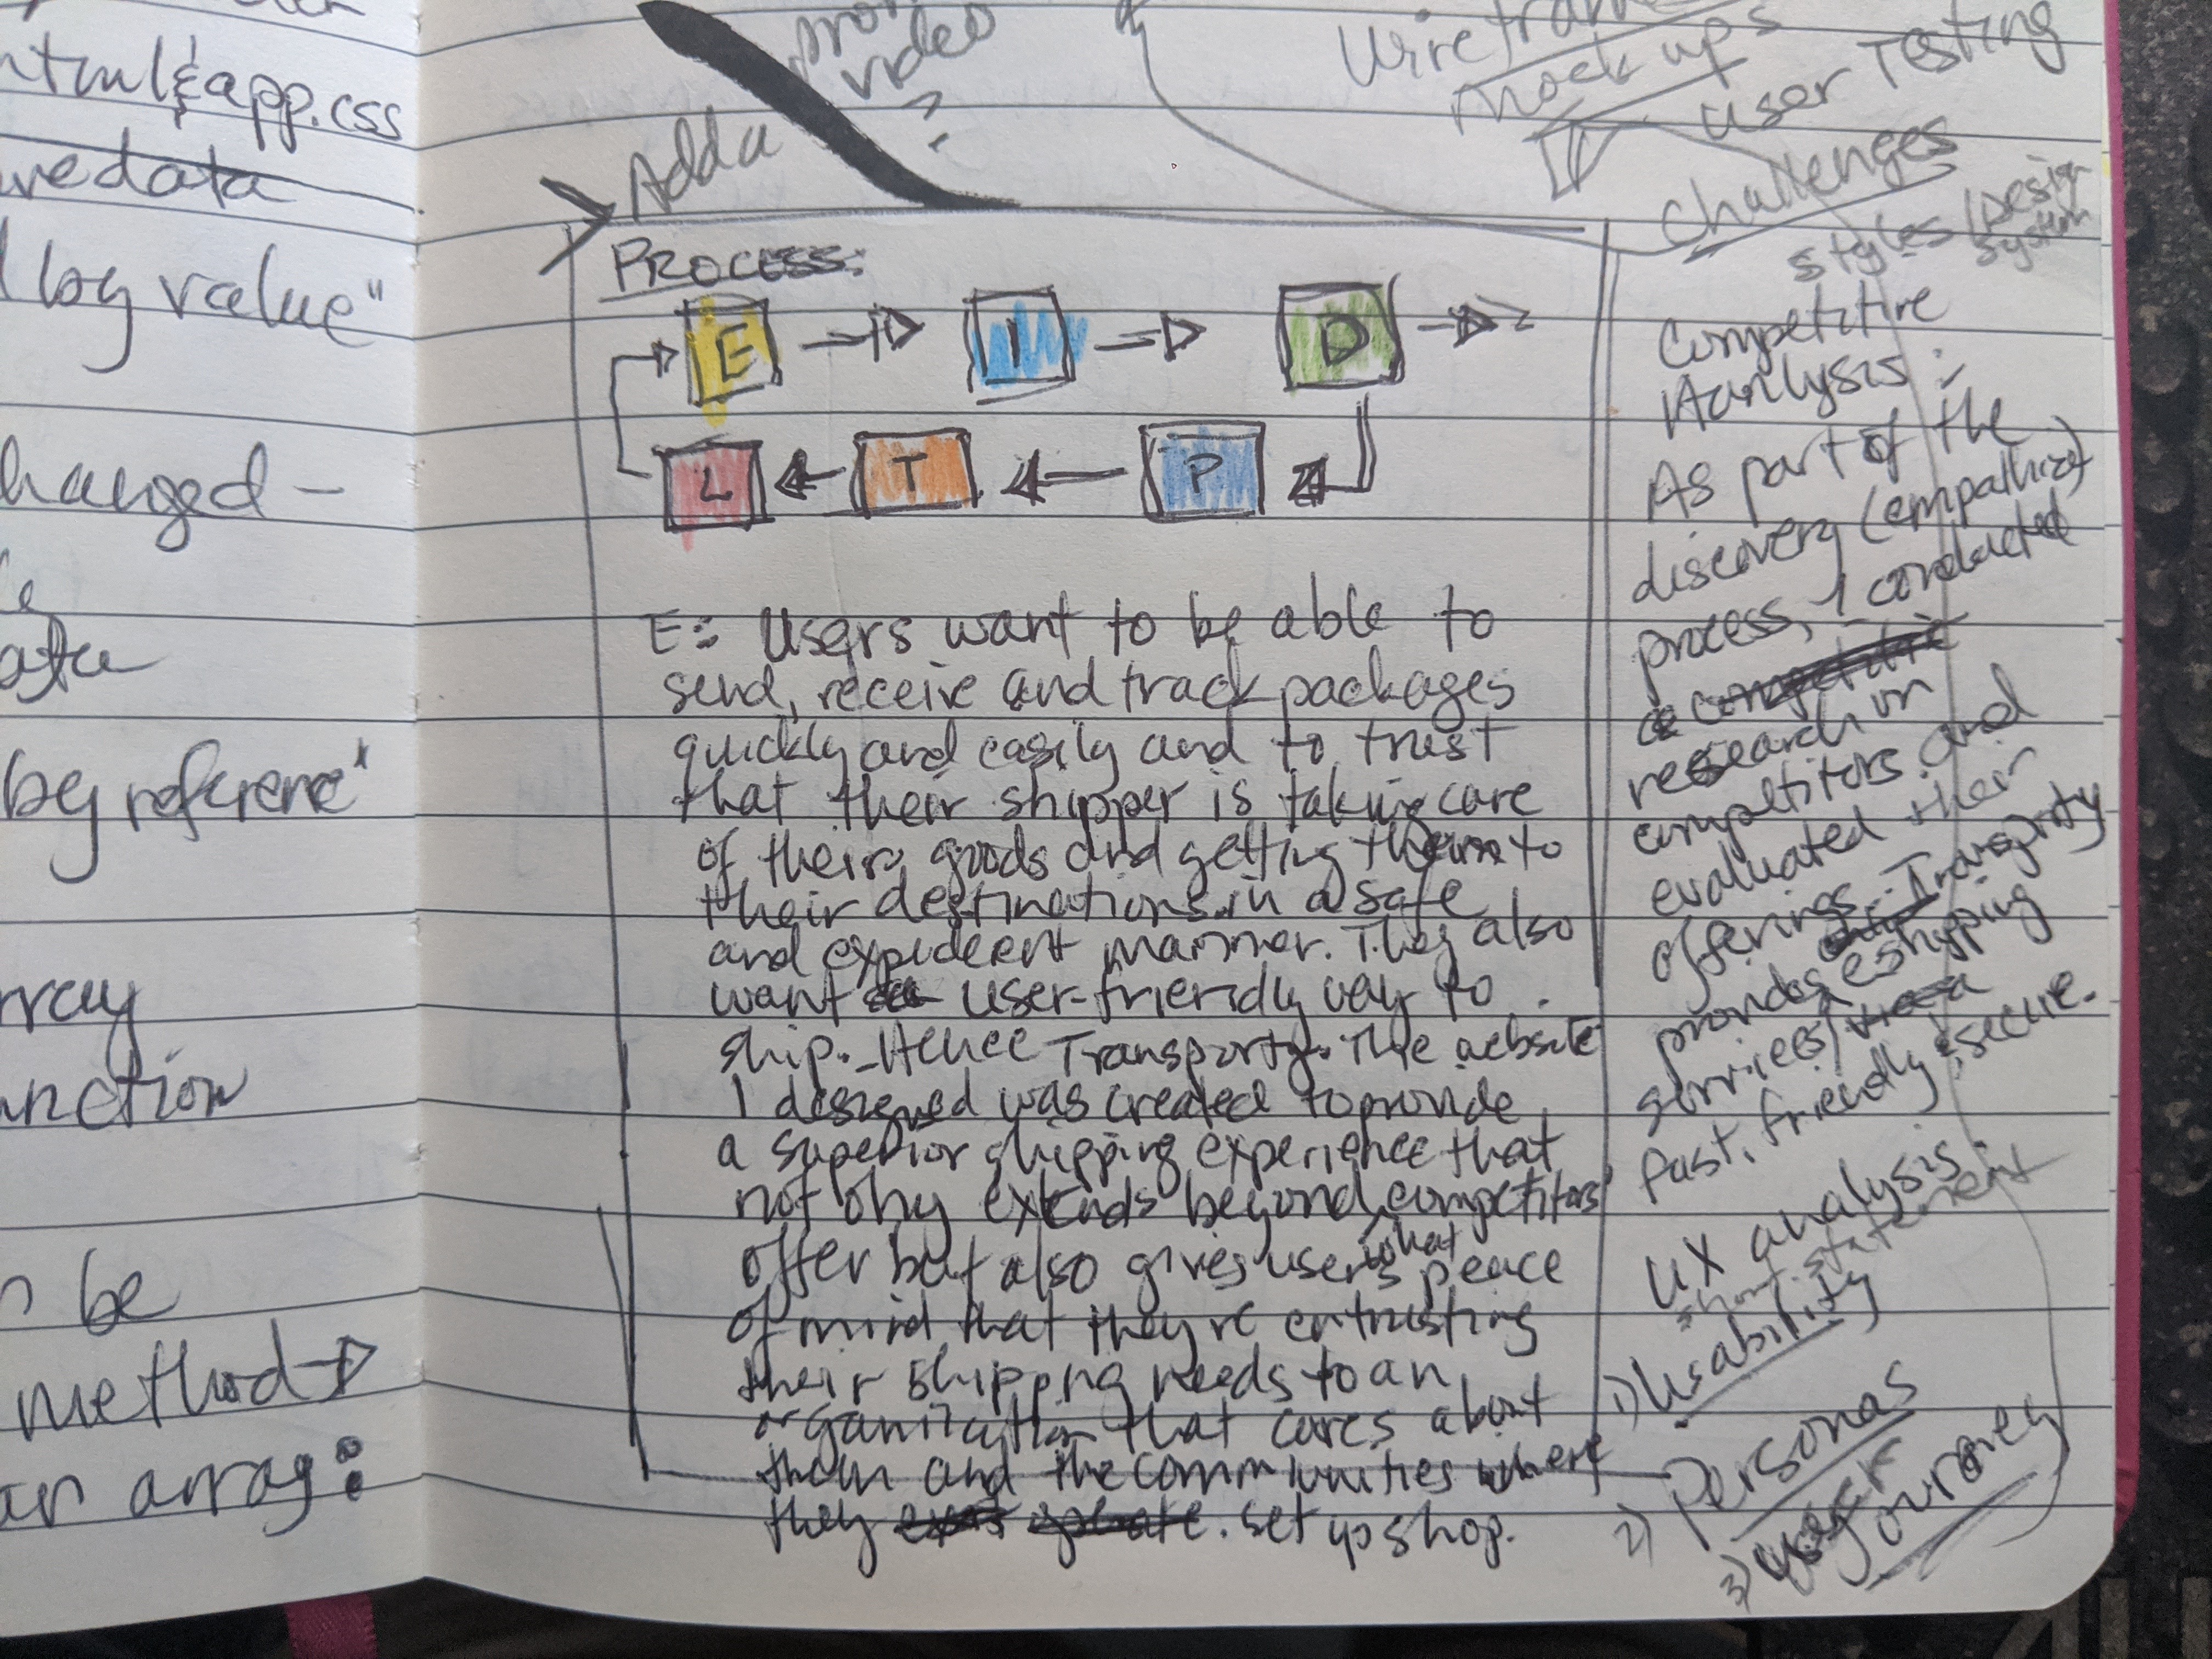 html & app.css
data
by value"
hanged -
by reference"
unction
be
method
an array:
Add a
video
?
Wireframe
mock ups
User Testing
Challenges
Styles/Design
System
PROCESS:
E
I
D
L
T
P
E: Users want to be able to
send, receive and track packages
quickly and easily and to trust
that their shipper is taking care
of their goods and getting them to
their destinations in a safe
and expedient manner. They also
want user-friendly way to
ship. Hence Transporty. The website
I designed was created to provide
a superior shipping experience that
not only extends beyond competitors'
what
offer but also gives users peace
of mind that they're entrusting
their shipping needs to an
organization that cares about
them and the communities where
they exist operate. set up shop.
Competitive
Aanlysis:
As part of the
discovery (empathize)
process, I conducted
a competitive
research on
competitors and
evaluated their
offerings. Transporty
provides eshipping
services
fast, friendly & secure.
UX analysis
short statement
1) Usability
2) Personas
3) User
Journey